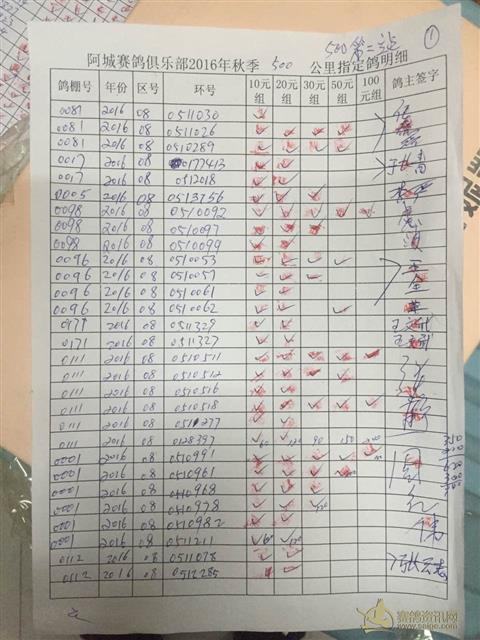 500 第二站
①
阿城赛鸽俱乐部2016年秋季 500 公里指定鸽明细
鸽棚号 年份 区号 环号 10元组 20元组 30元组 50元组 100元组 鸽主签字
0081 2016 08 0511030 ✓
0081 2016 08 0511026 ✓ ✓ ✓ ✓
0081 2016 08 0510289 ✓ ✓ ✓ ✓
0017 2016 08 0177413 ✓ ✓
0017 2016 08 0512018 ✓ ✓
0005 2016 08 0513756 ✓ ✓ ✓
0098 2016 08 0510092 ✓ ✓ ✓ ✓ ✓
0098 2016 08 0510097 ✓ ✓ ✓
0098 2016 08 0510099 ✓ ✓
0096 2016 08 0510053 ✓ ✓ ✓ ✓
0096 2016 08 0510057 ✓ ✓ ✓ 王
0096 2016 08 0510061 ✓ ✓ 全
0096 2016 08 0510062 ✓ ✓ ✓
0171 2016 08 0511329 ✓ ✓ 王文
0171 2016 08 0511327 ✓ ✓ 王文
0111 2016 08 0510511 ✓ ✓ ✓ ✓ ✓
0111 2016 08 0510512 ✓ ✓ ✓ ✓
0111 2016 08 0510516 ✓ ✓
0111 2016 08 0510518 ✓ ✓ ✓ ✓ ✓
0111 2016 08 0511277 ✓ ✓
0111 2016 08 0128397 ✓60 ✓120 90 150
0001 2016 08 0510991 ✓ ✓ ✓ ✓ ✓
0001 2016 08 0510961 ✓ ✓ ✓ ✓
0001 2016 08 0510968 ✓ ✓ ✓
0001 2016 08 0510978 ✓ ✓ ✓
0001 2016 08 0510982 ✓ ✓
0001 2016 08 0511211 ✓ ✓
0112 2016 08 0511078 ✓ ✓ 张云志
0112 2016 08 0512285 ✓ ✓
赛鸽资讯网
www.saige.com